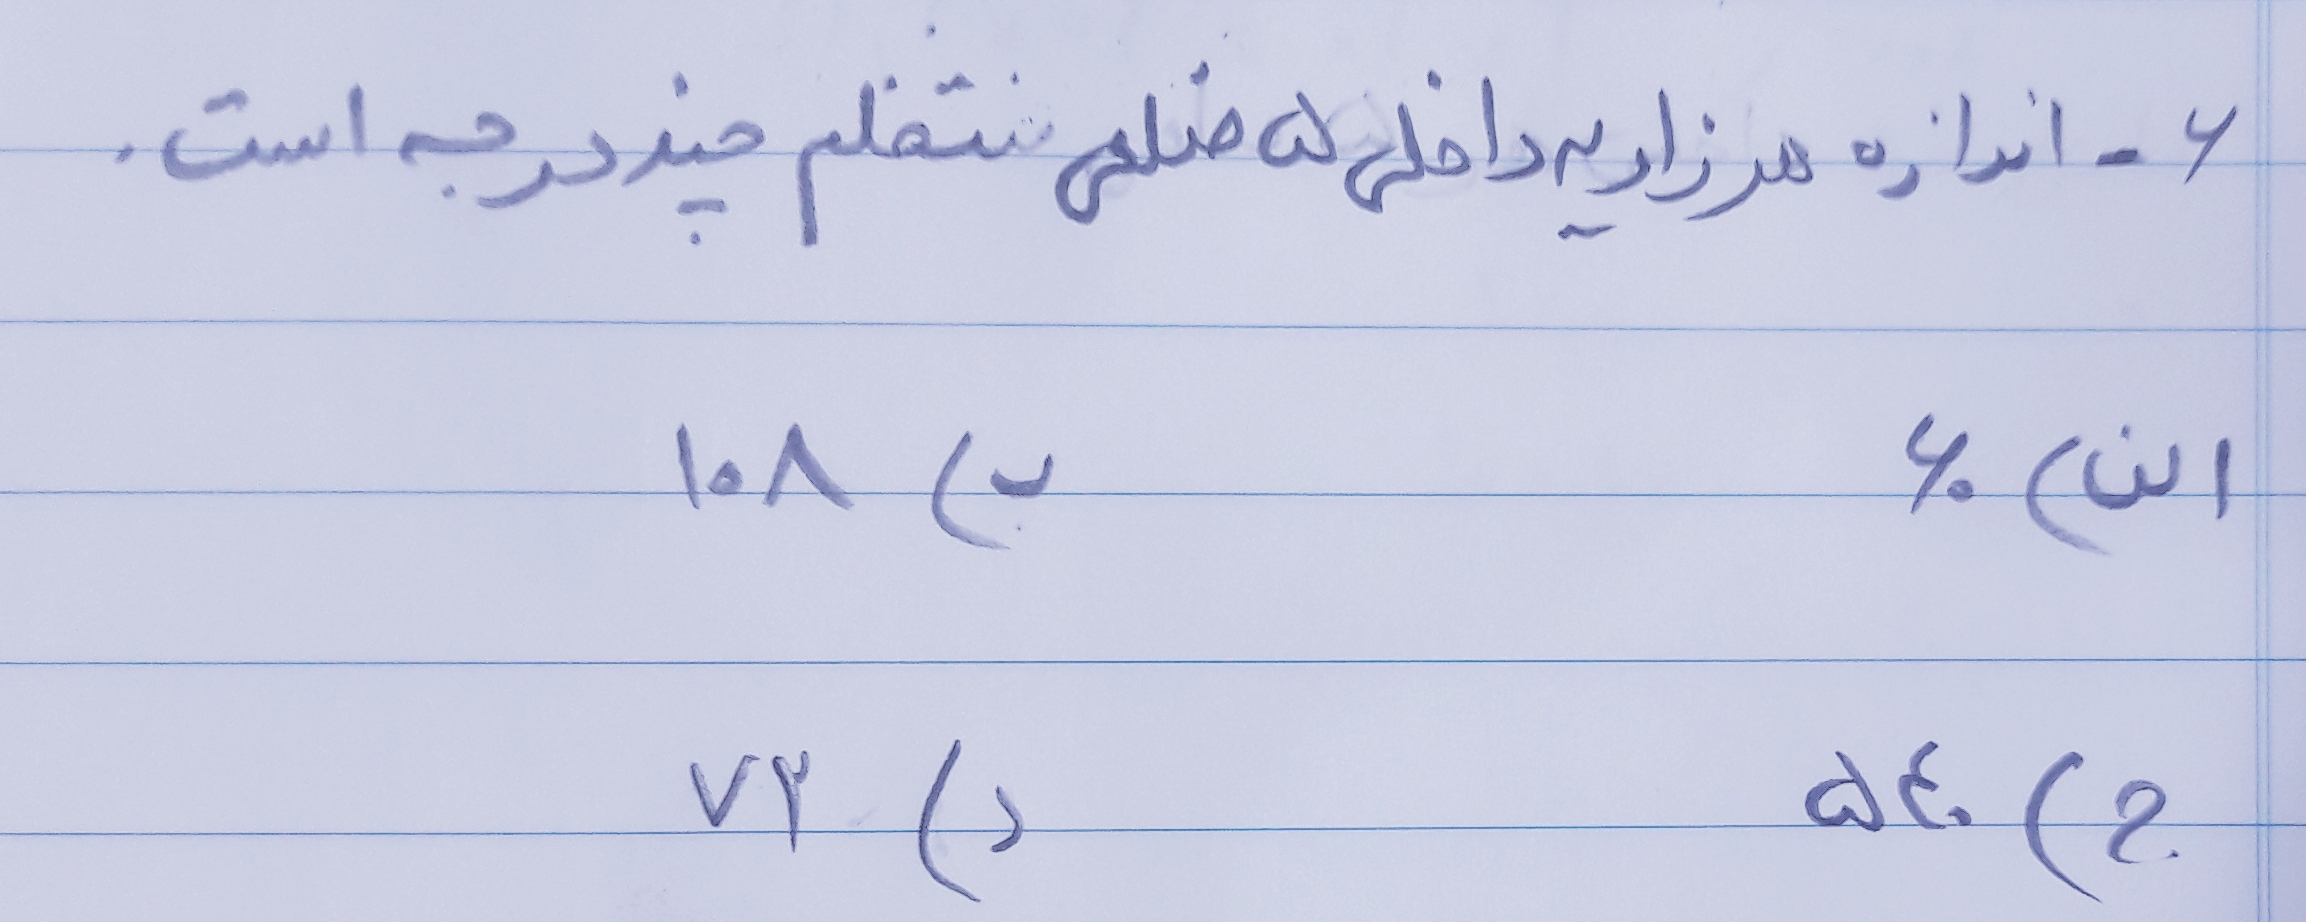 ۶- اندازه هر زاویه داخلی ۵ ضلعی منتظم چند درجه است.
الف) ۶۰ ب) ۱۰۸
ج) ۵۴۰ د) ۷۲